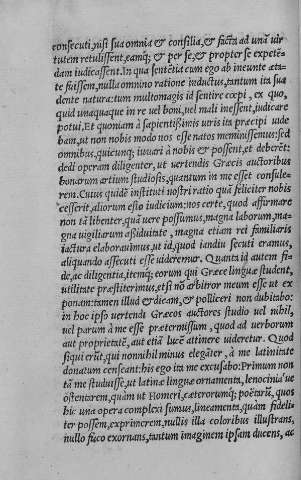 consecuti, nisi sua omnia & consilia, & facta ad unā uir
tutem retulissent, eamq́; & per se, & propter se expeten-
dam iudicassent. In qua sentētia cum ego ab ineunte æta-
te fuissem, nulla omnino ratione inductus, tantum ita sua
dente natura: tum multo magis id sentire cœpi, ex quo,
quid unaquaque in re uel boni, uel mali inesset, iudicare
potui. Et quoniam à sapientißimis uiris ita præcipi uide
bam, ut non nobis modo nos esse natos meminissemus: sed
omnibus, quicunq; iuuari à nobis & possent, et deberēt:
dedi operam diligenter, ut uertendis Græcis auctoribus
bonarum artium studiosis, quantum in me esset consule-
rem. Cuius quidē instituti nostri ratio quā feliciter nobis
cesserit, aliorum esto iudicium: nos certe, quod affirmare
non tā libenter, quā uere possumus, magna laborum, ma-
gna uigiliarum aßiduitate, magna etiam rei familiaris
iactura elaborauimus, ut id, quod iandiu secuti eramus,
aliquando assecuti esse uideremur. Quanta id autem fi-
de, ac diligentia, itemq́; eorum qui Græce linguæ student,
utilitate præstiterimus, etsi nō arbitror meum esse ut ex
ponam: tamen illud & dicam, & polliceri non dubitabo:
in hoc ipso uertendi Græcos auctores studio uel nihil,
uel parum à me esse prætermissum, quod ad uerborum
aut proprietatē, aut etiā lucē attinere uideretur. Quod
siqui erūt, qui nonnihil minus elegāter, à me latinitate
donatum censeant: his ego ita me excusabo: Primum non
tā me studuisse, ut latinæ linguæ ornamenta, lenocinia´ue
ostentarem, quàm ut Homeri, cæterorumq́; poëtarū, quos
hic una opera complexi sumus, lineamenta, quàm fideli-
ter possem, exprimerem, nullis illa coloribus illustrans,
nullo fuco exornans, tantum imaginem ipsam ducens, ac